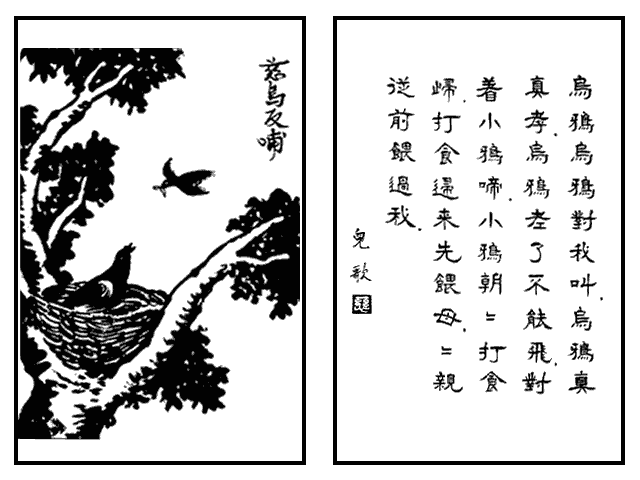 慈烏反哺
烏鴉烏鴉對我叫.烏鴉真
真孝.烏鴉老了不能飛.對
着小鴉啼.小鴉朝〻打食
歸.打食還来先餵母.〻親
從前餵過我.
兒歌